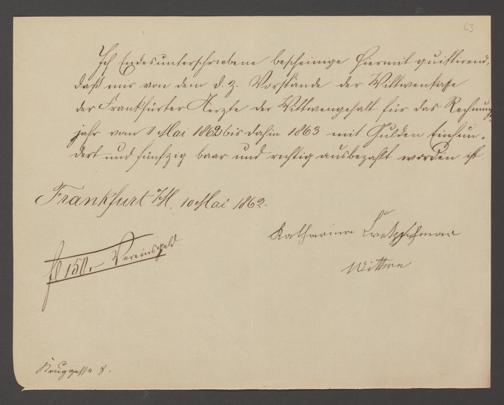 63
Ich Endesunterschriebene bescheinige hiermit quittirend,
daß mir von dem d. z. Vorstande der Wittwenkasse
der Frankfurter Aerzte der Wittwengehalt für das Rechnungs
jahr vom 1 Mai 1862 bis dahin 1863 mit Gulden Einhun-
dert und fünfzig baar und richtig ausbezahlt worden ist
Frankfurt a/M, 10 Mai 1862.
Katharina
fl 150.– Vereinsgeld
Wittwe
8.